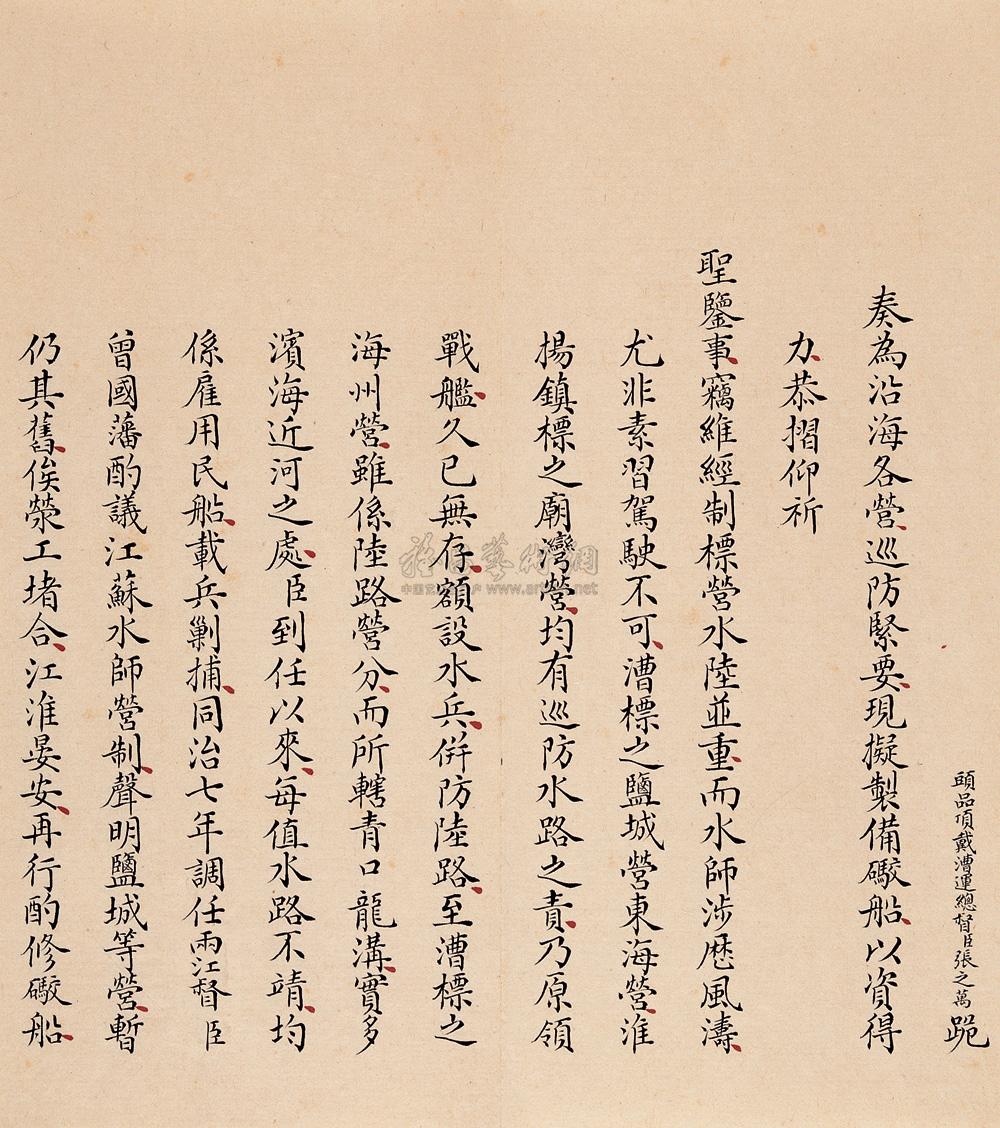 頭品頂戴漕運總督臣張之萬跪
奏為沿海各營巡防緊要現擬製備礮船以資得
力恭摺仰祈
聖鑒事竊維經制標營水陸並重而水師涉歷風濤
尤非素習駕駛不可漕標之鹽城營東海營淮
揚鎮標之廟灣營均有巡防水路之責乃原領
戰艦久已無存額設水兵併防陸路至漕標之
海州營雖係陸路營分而所轄青口龍溝實多
濱海近河之處臣到任以來每值水路不靖均
係雇用民船載兵剿捕同治七年調任兩江督臣
曾國藩酌議江蘇水師營制聲明鹽城等營暫
仍其舊俟滎工堵合江淮晏安再行酌修礮船